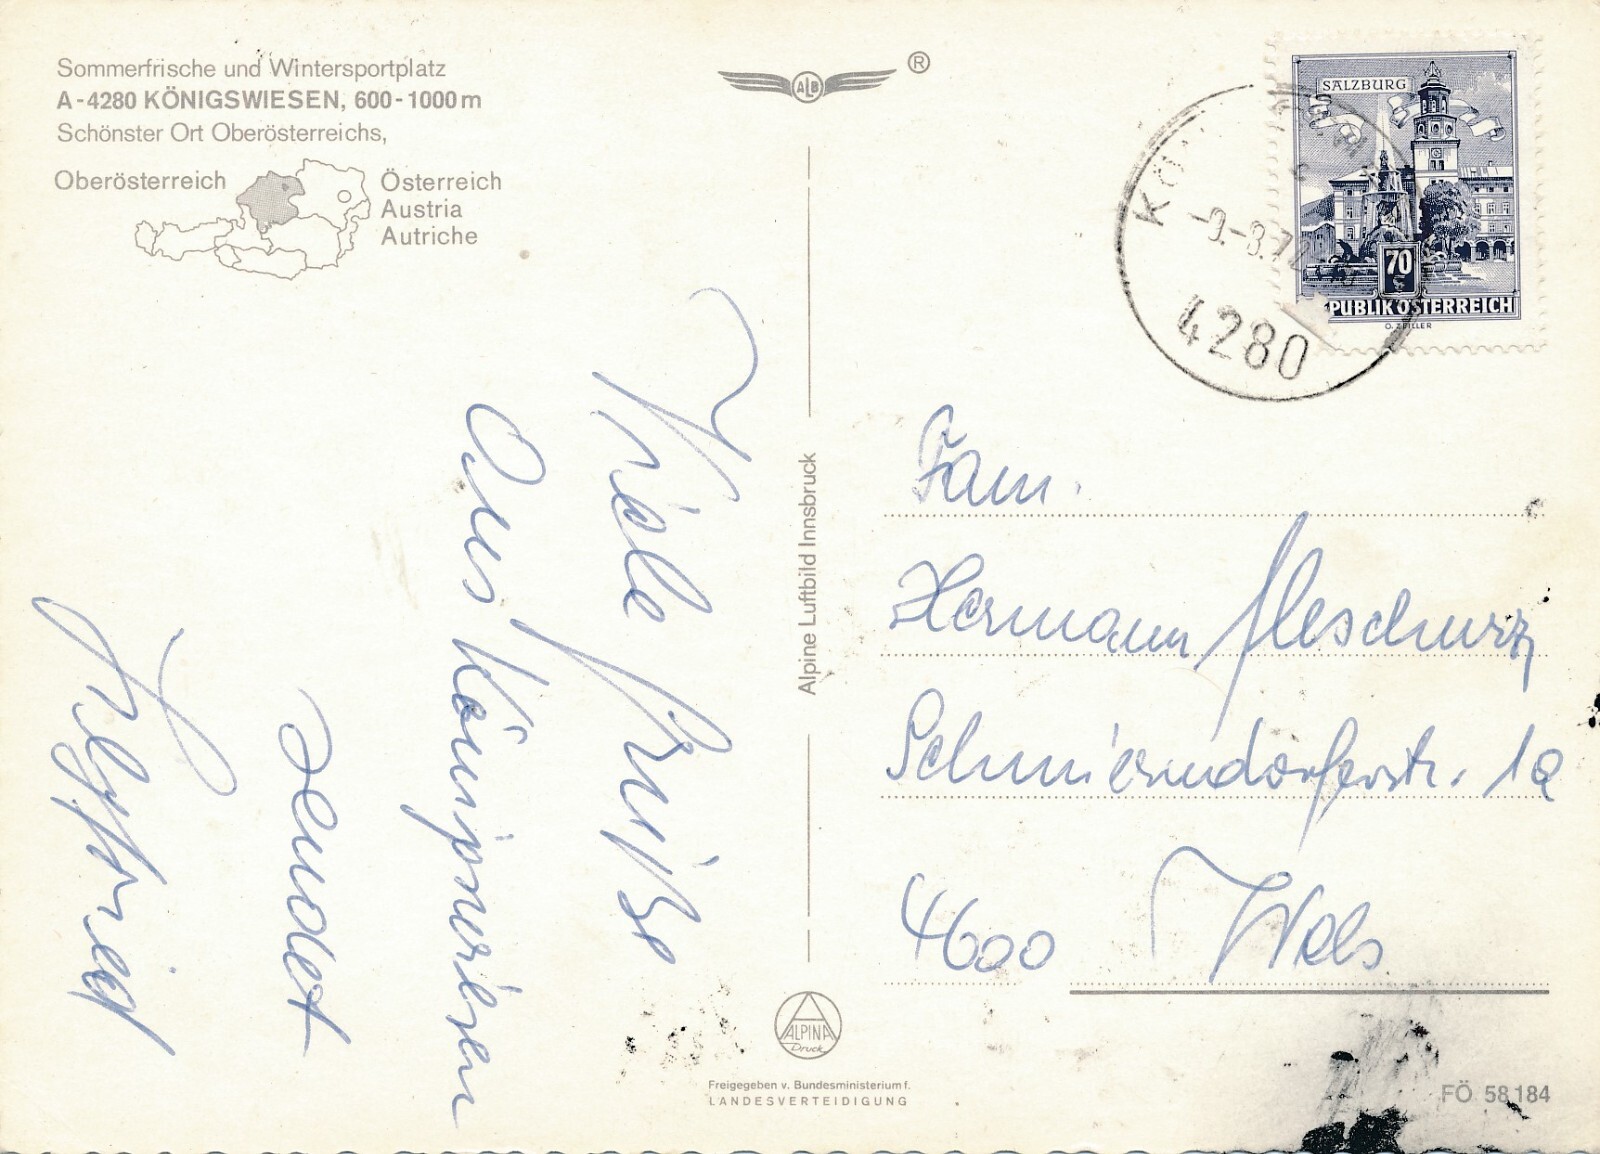 Sommerfrische und Wintersportplatz
A-4280 KÖNIGSWIESEN, 600-1000m
Schönster Ort Oberösterreichs,
Oberösterreich
Österreich
Austria
Autriche
ALB
®
SALZBURG
70
PUBLIK ÖSTERREICH
O. ZEILLER
4280
Viele Grüße
Aus Königswiesen
sendet
Alpine Luftbild Innsbruck
Fam.
Hermann
Schmierndorferstr. 1a
4600 Wels
ALPINA
Druck
Freigegeben v. Bundesministerium f.
LANDESVERTEIDIGUNG
FÖ 58184